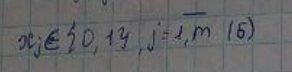 x_j ∈ {0, 1}, j = \overline{1, m} (5)